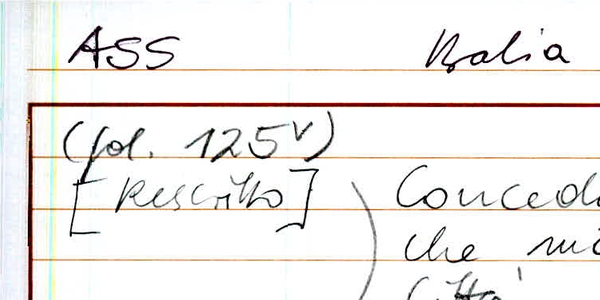 ASS Balia
(fol. 125v)
[Rescritto] Conced
che mi
Città